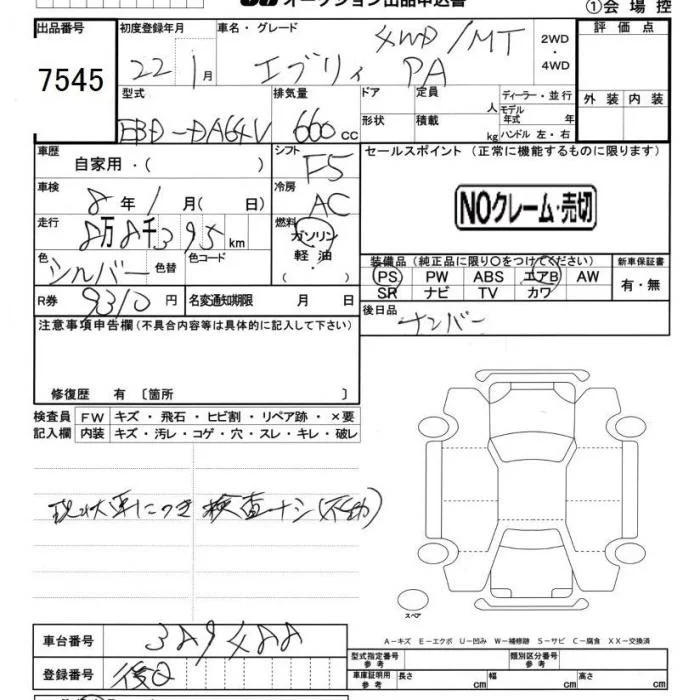 オークション出品申込書
①会場控
出品番号 初度登録年月 車名・グレード 評価点
7545 22 1月 エブリィ PA 4WD/MT 2WD・4WD
型式 排気量 ドア 定員 人 ディーラー・並行 外装 内装
EBD-DA64V 660cc 形状 積載 kg モデル年式 年 ハンドル 左・右
車歴 自家用・( ) シフト F5 セールスポイント (正常に機能するものに限ります)
車検 8年1月(日) 冷房 AC
NOクレーム・売切
走行 8万8千395km 燃料 ガソリン 軽油 ( )
色 シルバー 色替 色コード
装備品 (純正品に限り○をつけてください) 新車保証書
PS PW ABS エアB AW 有・無
SR ナビ TV カワ
R券 9310円 名変通知期限 月 日
後日品 ナンバー
注意事項申告欄 (不具合内容等は具体的に記入して下さい)
修復歴 有 〔箇所 〕
検査員 FW キズ・飛石・ヒビ割・リペア跡・×要
記入欄 内装 キズ・汚レ・コゲ・穴・スレ・キレ・破レ
現状車につき 検査ナシ(不動)
スペア
A-キズ E-エクボ U-凹み W-補修跡 S-サビ C-腐食 XX-交換済
車台番号 389488
型式指定番号 参考 類別区分番号 参考
登録番号 後日
車庫証明用 参考 長さ cm 幅 cm 高さ cm